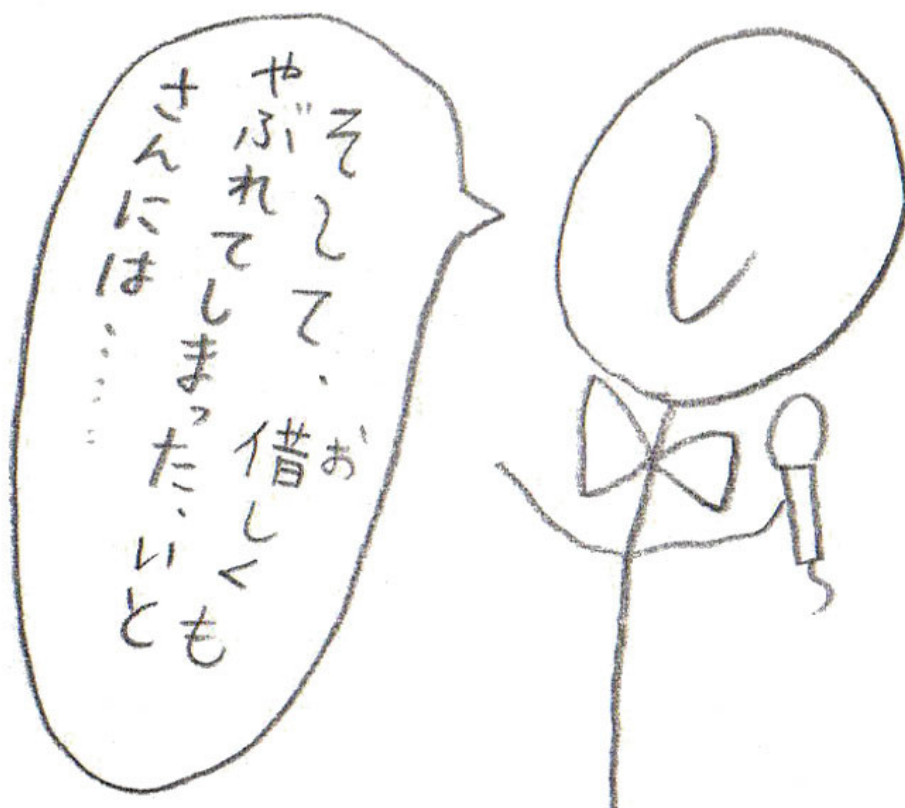 そして、借しくも
お
やぶれてしまった、いと
さんには……